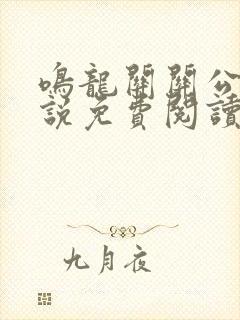 鳴龍關關公
說免費閱讀
九月夜